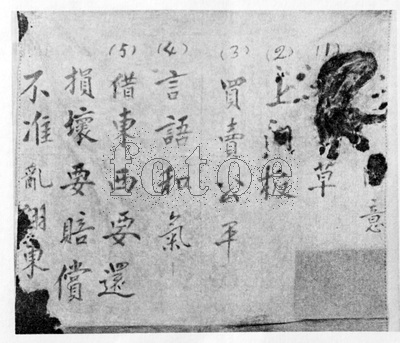 意
(1) 草
(2) 上門板
(3) 買賣公平
(4) 言語和氣
(5) 借東西要還
損壞要賠償
不准亂翻東
fotoe